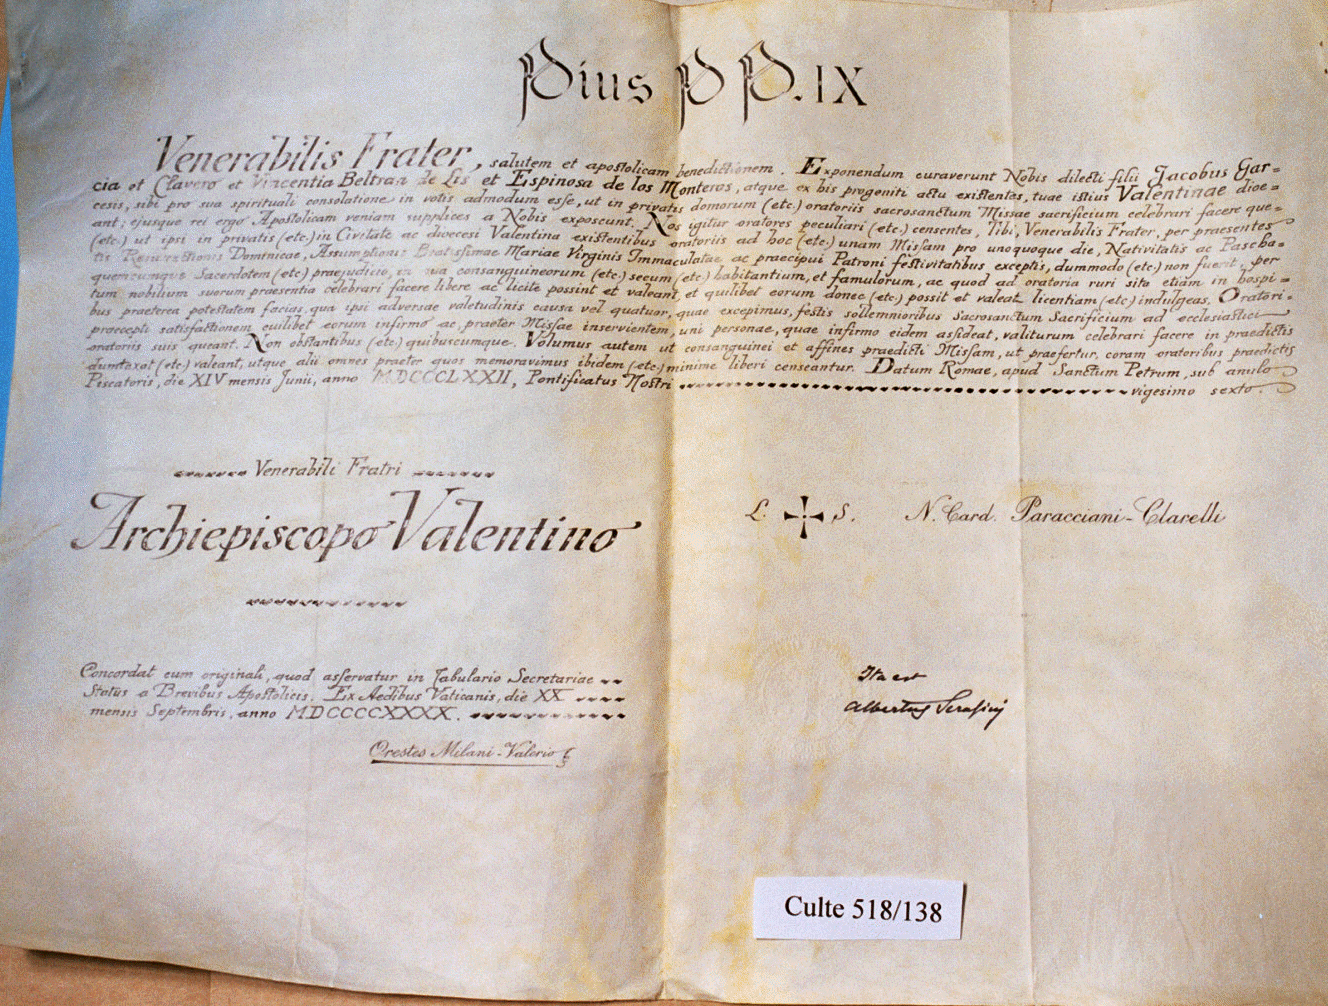 Pius P P. IX
Venerabilis Frater, salutem et apostolicam benedictionem. Exponendum curaverunt Nobis dilecti filii Jacobus Gar=
cia et Clavero et Vincentia Beltran de Lis et Espinosa de los Monteros, atque ex his progeniti actu existentes, tuae istius Valentinae dioe=
cesis, sibi pro sua spirituali consolatione in votis admodum esse, ut in privatis domorum (etc.) oratoriis sacrosanctum Missae sacrificium celebrari facere que=
ant; ejusque rei ergo Apostolicam veniam supplices a Nobis exposcunt. Nos igitur oratores peculiari (etc.) censentes, Tibi, Venerabilis Frater, per praesentes
(etc.) ut ipsi in privatis (etc.) in Civitate ac dioecesi Valentina existentibus oratoriis ad hoc (etc.) unam Missam pro unoquoque die, Nativitatis ac Pascha=
tis Resurrectionis Dominicae, Assumptionis Beatissimae Mariae Virginis Immaculatae ac praecipui Patroni festivitatibus exceptis, dummodo (etc.) non fuerit, per
quemcumque Sacerdotem (etc.) praejudicio, in sua consanguineorum (etc.) secum (etc.) habitantium, et famulorum, ac quod ad oratoria ruri sita etiam in hospi=
tum nobilium suorum praesentia celebrari facere libere ac licite possint et valeant, et quilibet eorum donec (etc.) possit et valeat licentiam (etc.) indulgeas. Oratori=
bus praeterea potestatem facias, qua ipsi adversae valetudinis causa vel quatuor, quae excepimus, festis sollemnioribus Sacrosanctum Sacrificium ad ecclesiastici
praecepti satisfactionem cuilibet eorum infirmo ac, praeter Missae inservientem, uni personae, quae infirmo eidem assideat, valiturum celebrari facere in praedictis
oratoriis suis queant. Non obstantibus (etc.) quibuscumque. Volumus autem ut consanguinei et affines praedicti Missam, ut praefertur, coram oratoribus praedictis
dumtaxat (etc.) valeant, utque alii omnes praeter quos memoravimus ibidem (etc.) minime liberi censeantur. Datum Romae, apud Sanctum Petrum, sub anulo
Piscatoris, die XIV mensis Junii, anno MDCCCLXXII, Pontificatus Nostri vigesimo sexto.
Venerabili Fratri
Archiepiscopo Valentino
L. S. N. Card. Paracciani-Clarelli
Concordat cum originali, quod asservatur in Tabulario Secretariae
Status a Brevibus Apostolicis. Ex Aedibus Vaticanis, die XX
mensis Septembris, anno MDCCCCXXXX.
Orestes Milani-Valerio
Ita est
Albertus Serafini
Culte 518/138